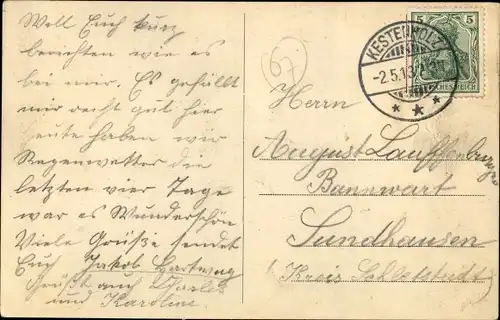 Will Euch kurz
berichten wie es
bei mir. Es gefällt
mir recht gut hier
heute haben wir
Regenwetter die
letzten vier Tage
war es Wunderschön
Viele Grüße sendet
Euch Jakob Hartweg
Grüßt auch Charles
und Karoline.
67
KESTENHOLZ
-2.5.13
5 5
DEUTSCHES REICH
Herrn
August Lauffenburger
Bannwart
Sundhausen
Kreis Schletstadt